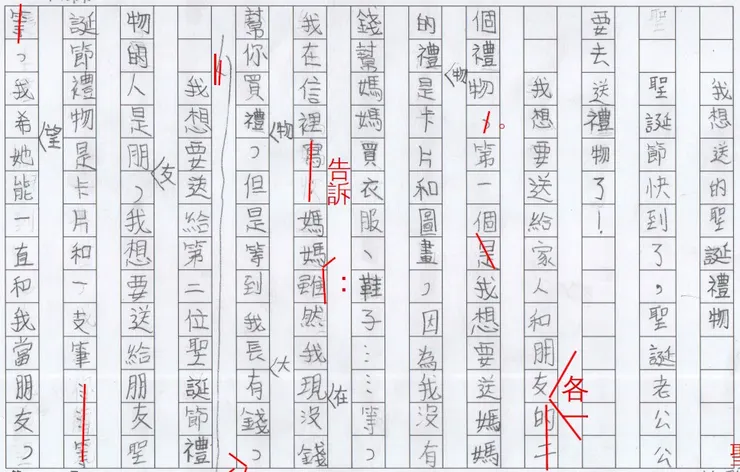 我想送的聖誕禮物
聖誕節快到了，聖誕老公公
要去送禮物了！
我想要送給家人和朋友的二
各一
個禮物。第一個是我想要送媽媽
的禮物是卡片和圖畫，因為我沒有
錢幫媽媽買衣服、鞋子……等，
我在信裡寫：媽媽雖然我現在沒錢
告訴
：
幫你買禮物，但是等到我長大有錢，
我想要送給第二位聖誕節禮
物的人是朋友，我想要送給朋友聖
誕節禮物是卡片和一支筆……等
，我希望她能一直和我當朋友，